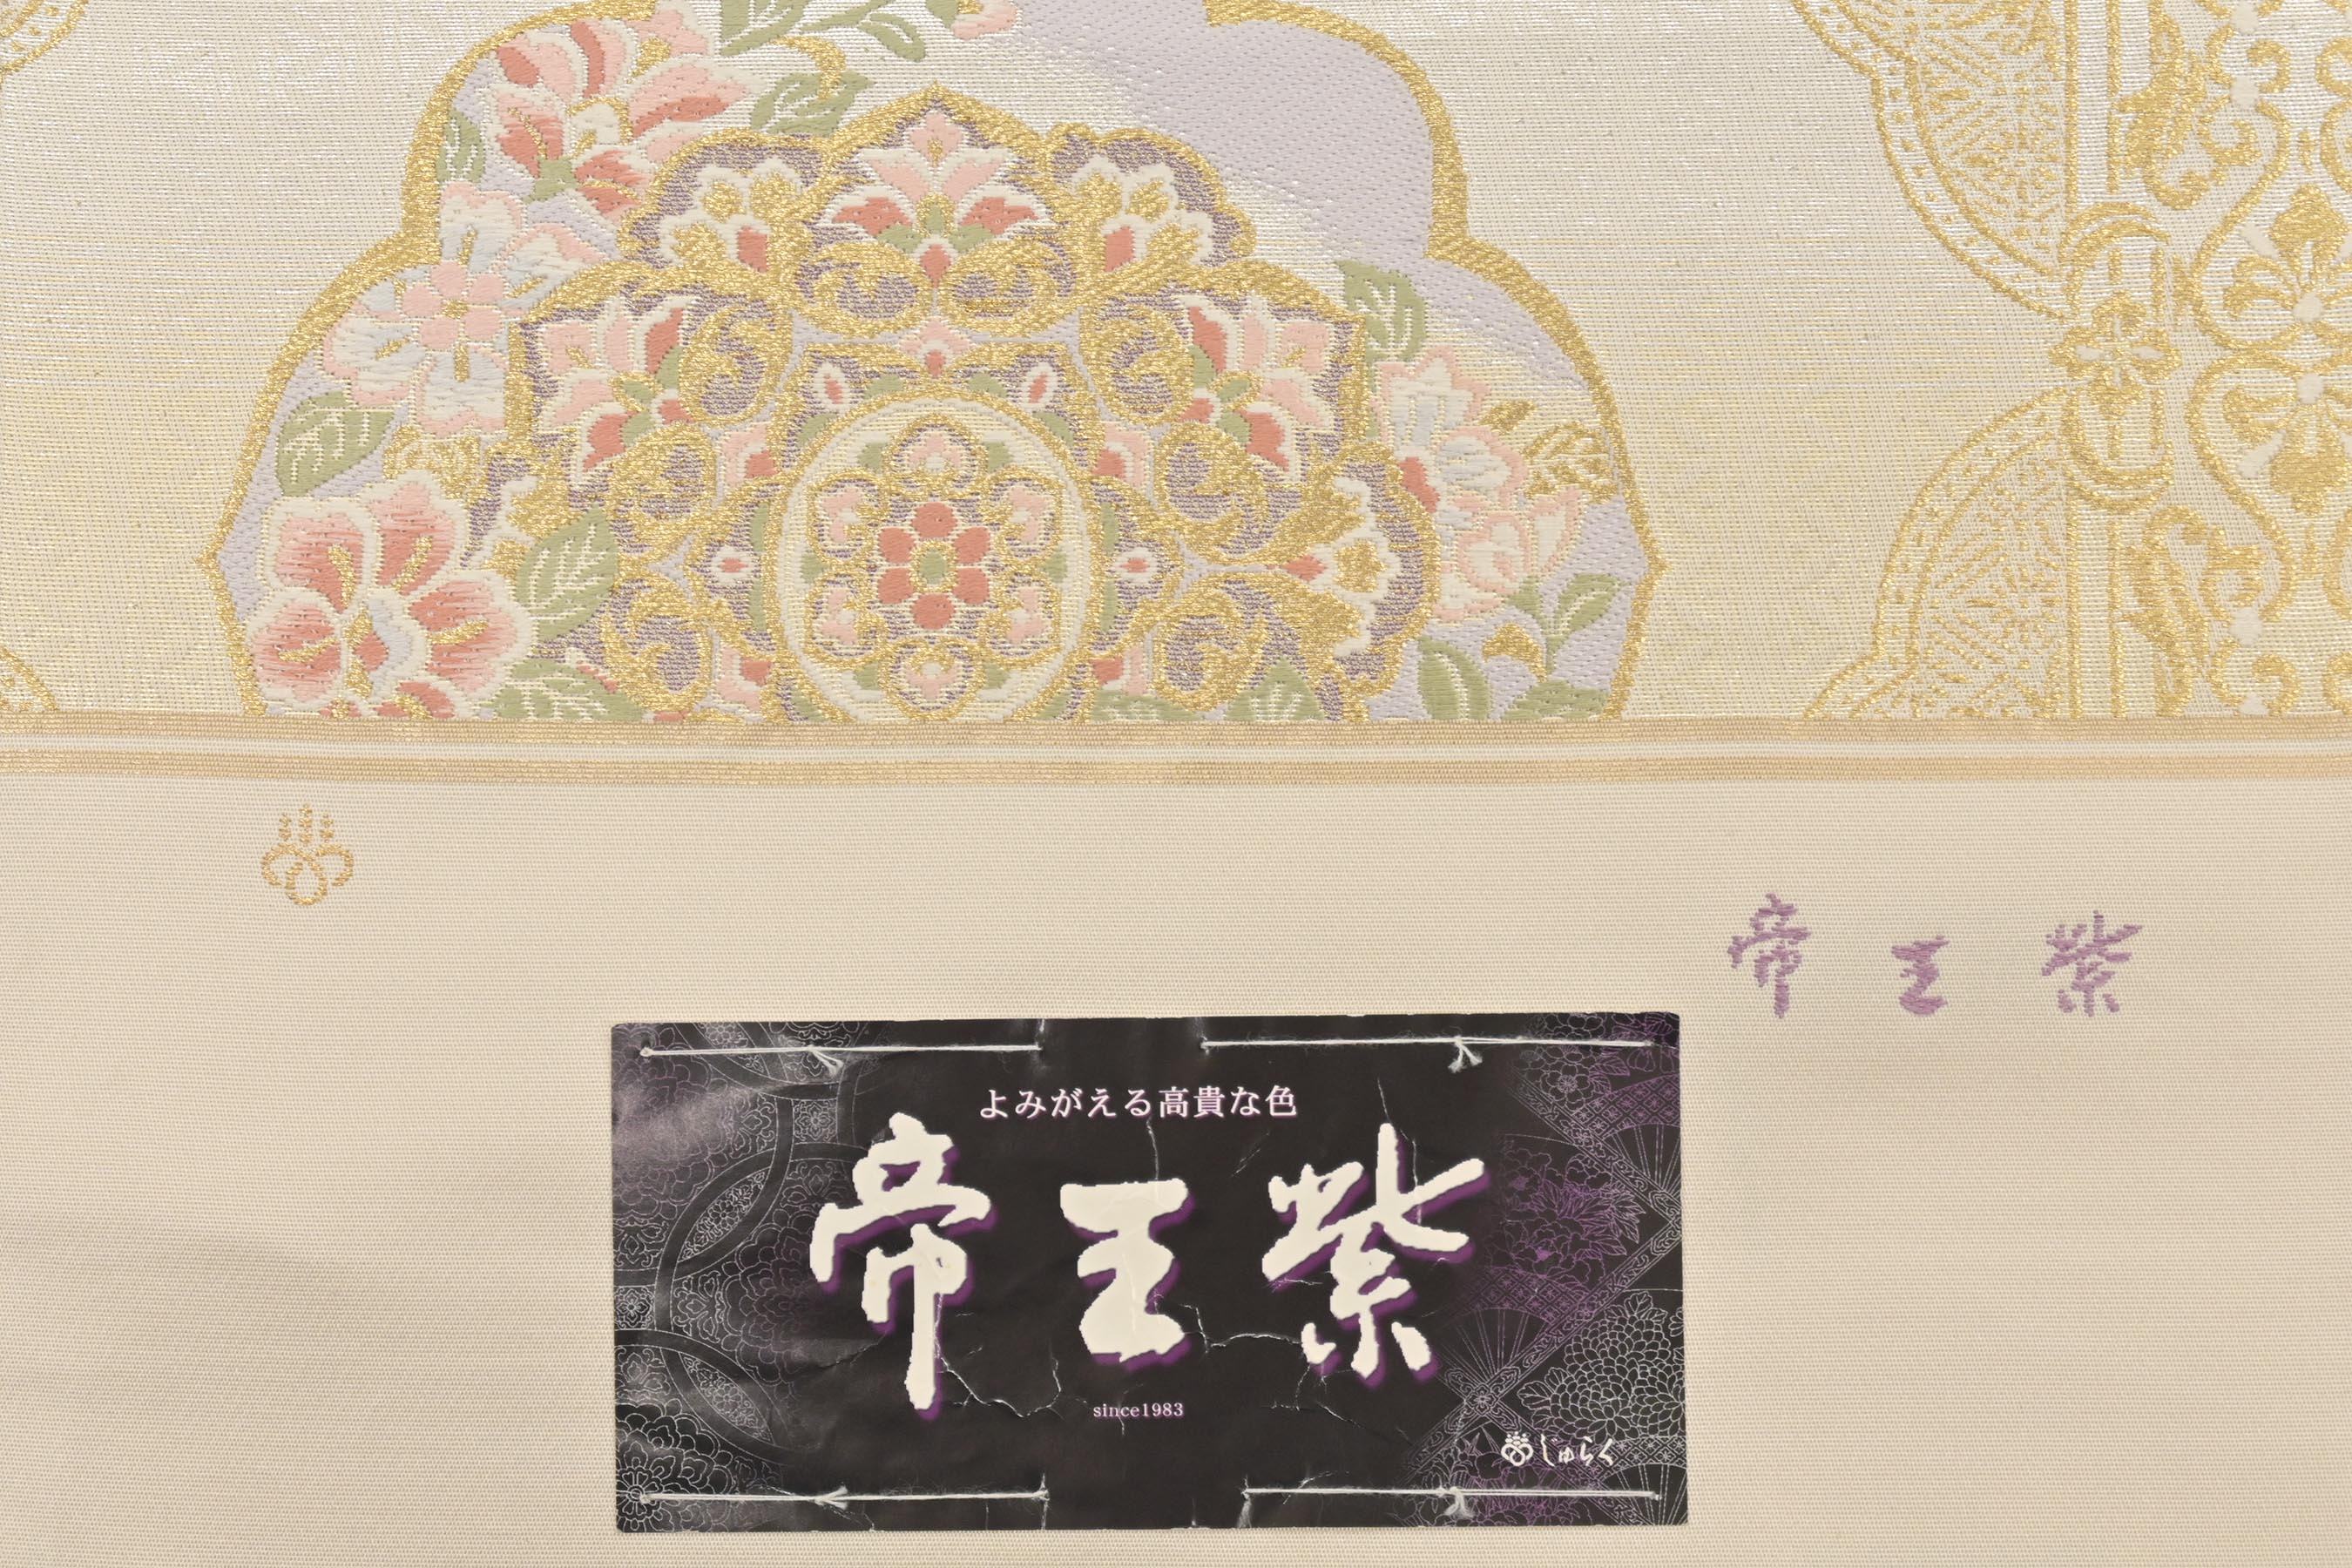 帝王紫
よみがえる高貴な色
帝王紫
since1983
じゅらく